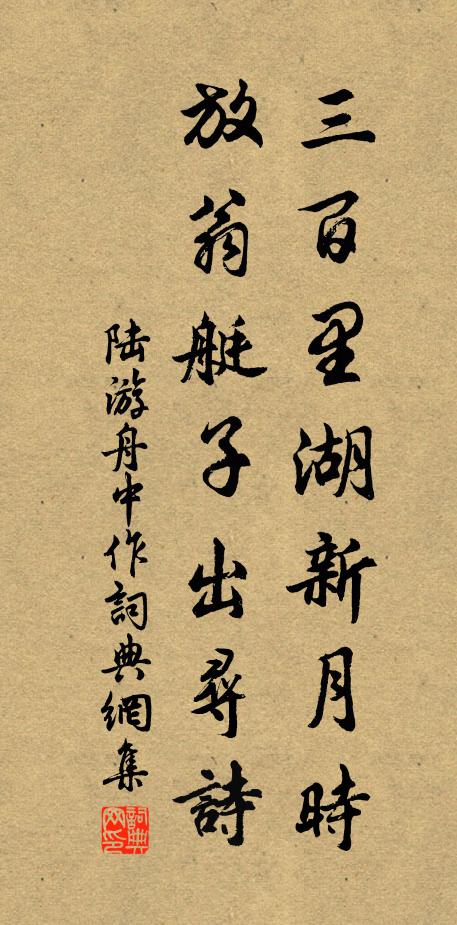 三百里湖新月時
放翁艇子出尋詩
陸游舟中作詞典網集
詞典網印